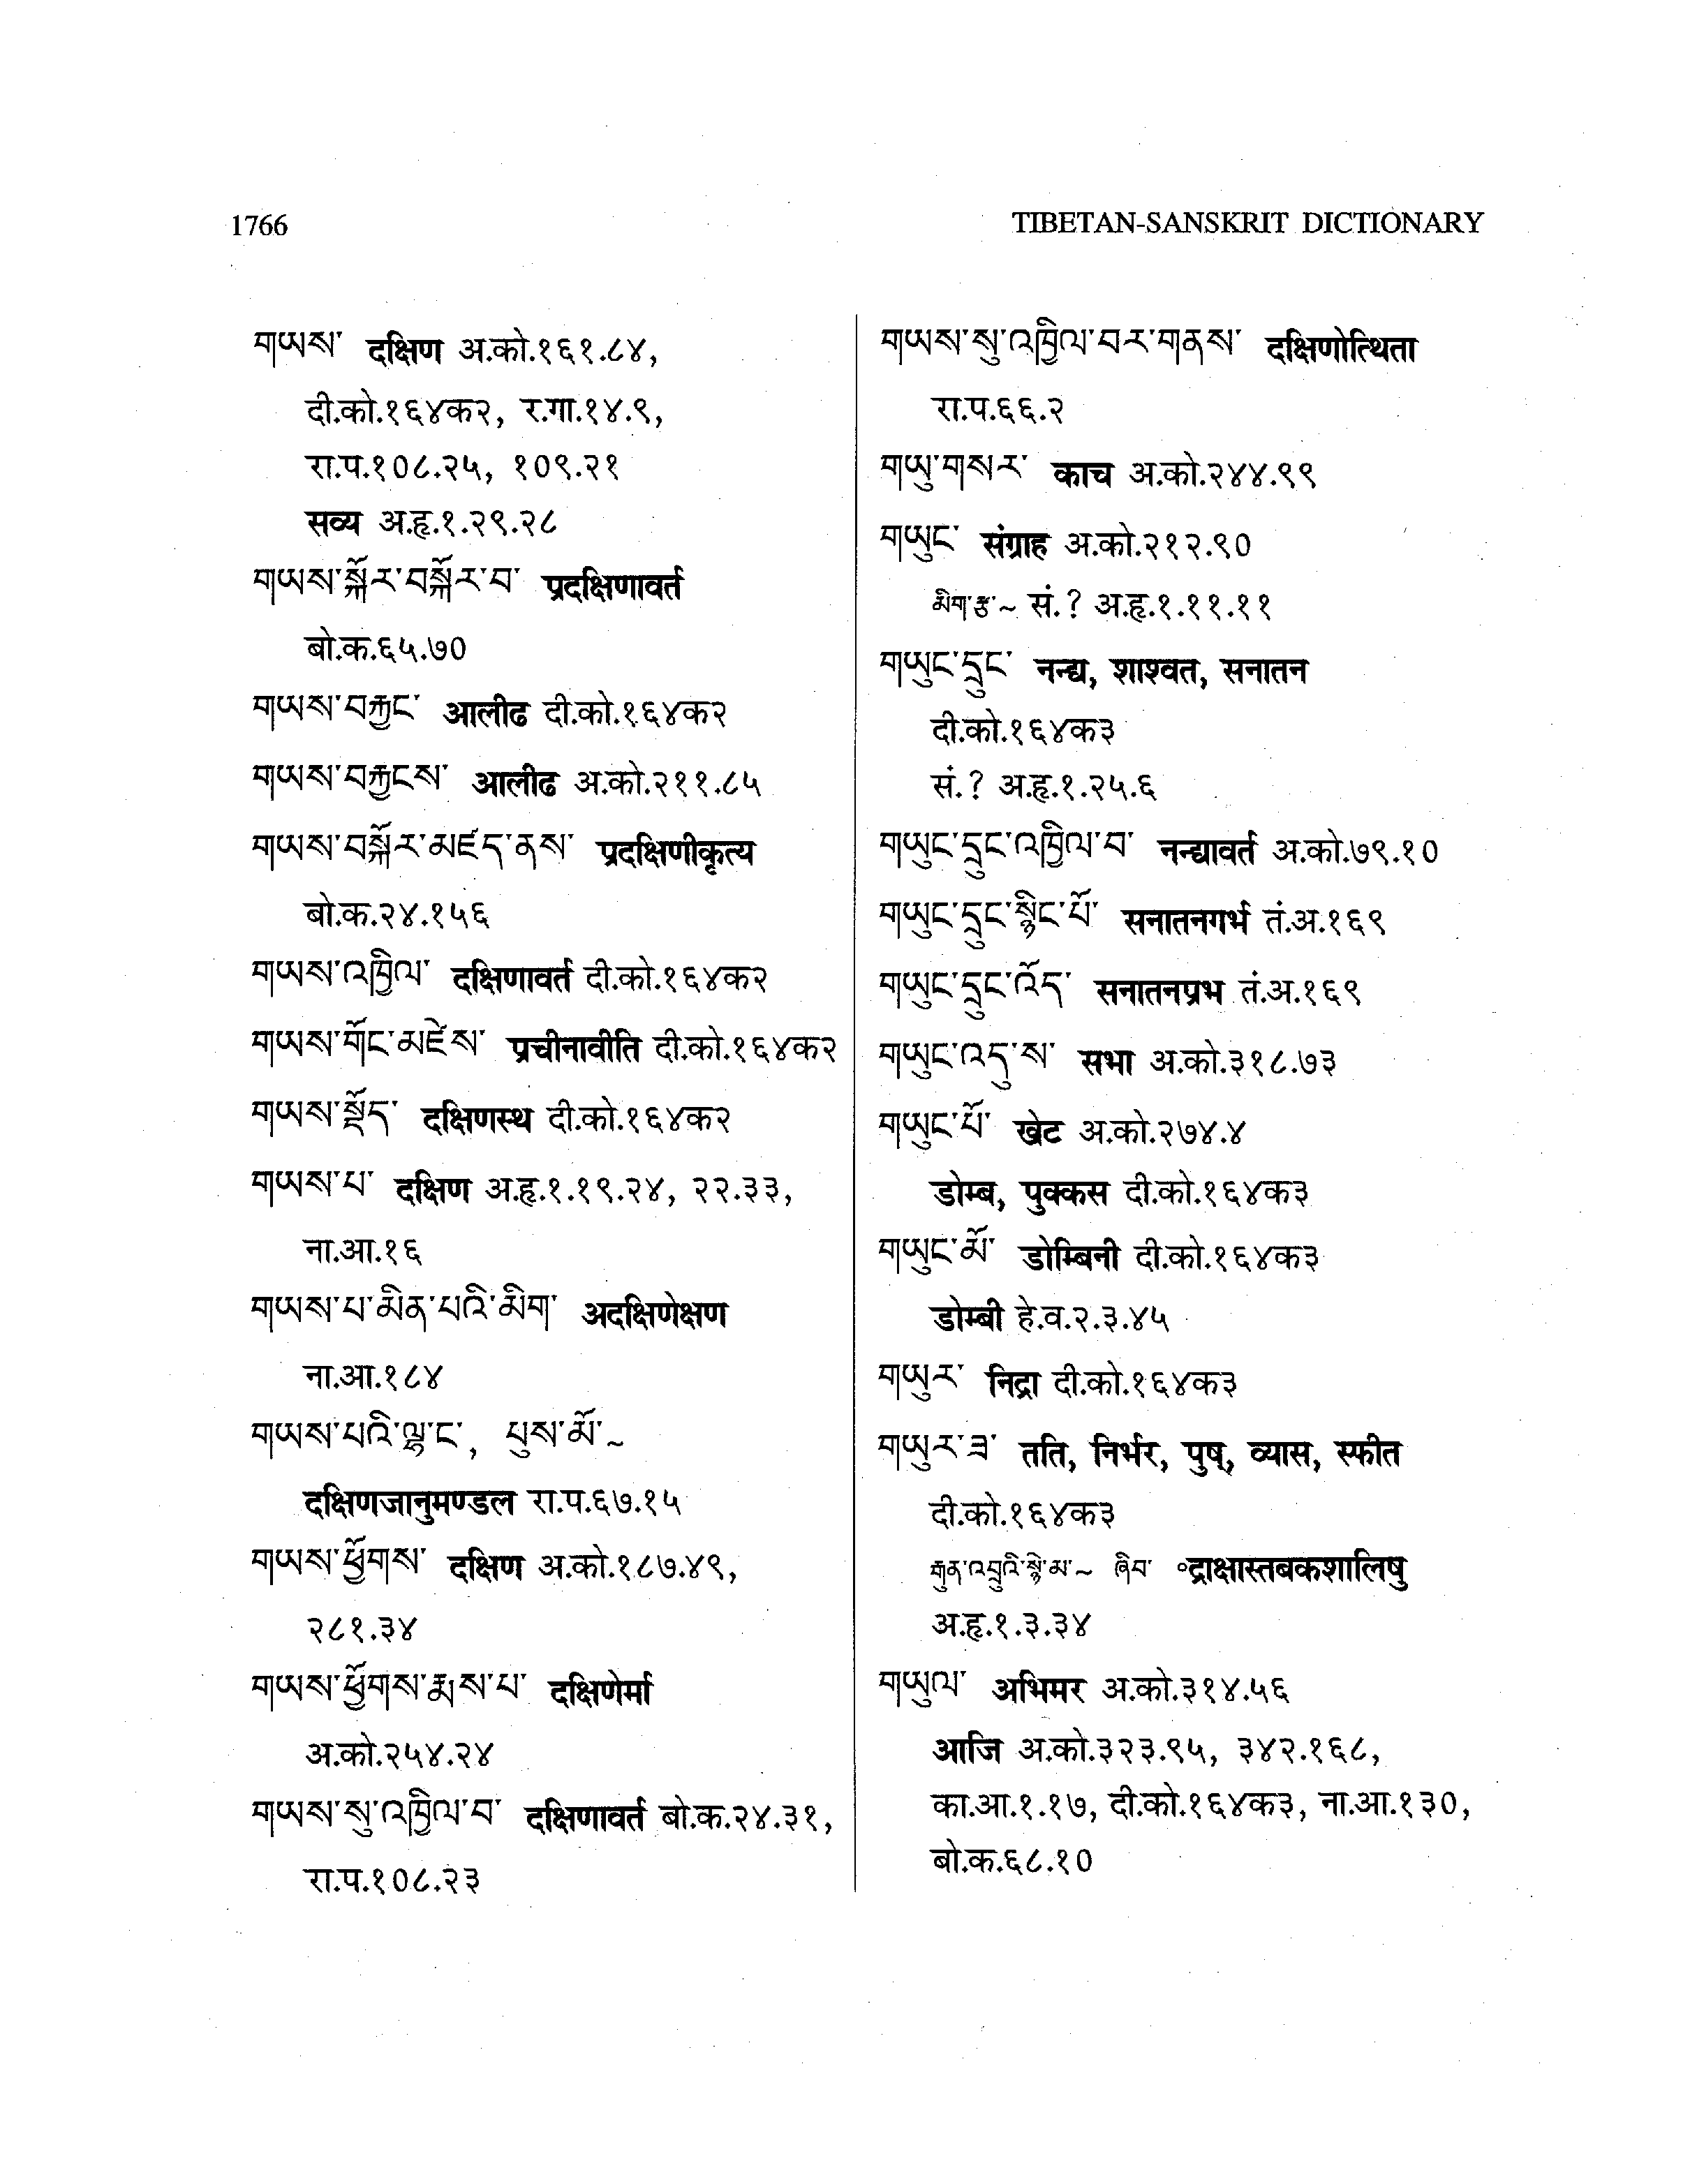 1766
TIBETAN-SANSKRIT DICTIONARY
གཡས་ दक्षिण अ.को.१६१.८४,
दी.को.१६४क२, र.गा.१४.९,
रा.प.१०८.२५, १०९.२१
सव्य अ.हृ.१.२९.२८
གཡས་སྐོར་བསྐོར་བ་ प्रदक्षिणावर्त
बो.क.६५.७०
གཡས་བརྐྱང་ आलीढ दी.को.१६४क२
གཡས་བརྐྱངས་ आलीढ अ.को.२११.८५
གཡས་བསྐོར་མཛད་ནས་ प्रदक्षिणीकृत्य
बो.क.२४.१५६
གཡས་འཁྱིལ་ दक्षिणावर्त दी.को.१६४क२
གཡས་གོང་མཛེས་ प्रचीनावीति दी.को.१६४क२
གཡས་སྡོད་ दक्षिणस्थ दी.को.१६४क२
གཡས་པ་ दक्षिण अ.हृ.१.१९.२४, २२.३३,
ना.आ.१६
གཡས་པ་མིན་པའི་མིག་ अदक्षिणेक्षण
ना.आ.१८४
གཡས་པའི་ལྷ་ང་, པུས་མོ་~
दक्षिणजानुमण्डल रा.प.६७.१५
གཡས་ཕྱོགས་ दक्षिण अ.को.१८७.४९,
२८१.३४
གཡས་ཕྱོགས་རྨས་པ་ दक्षिणेर्मा
अ.को.२५४.२४
གཡས་སུ་འཁྱིལ་བ་ दक्षिणावर्त बो.क.२४.३१,
रा.प.१०८.२३
གཡས་སུ་འཁྱིལ་བར་གནས་ दक्षिणोत्थिता
रा.प.६६.२
གཡུ་གསར་ काच अ.को.२४४.९९
གཡུང་ संग्राह अ.को.२१२.९०
མིག་རྩ་~ सं.? अ.हृ.१.११.११
གཡུང་དྲུང་ नन्द्य, शाश्वत, सनातन
दी.को.१६४क३
सं.? अ.हृ.१.२५.६
གཡུང་དྲུང་འཁྱིལ་བ་ नन्द्यावर्त अ.को.७९.१०
གཡུང་དྲུང་སྙིང་པོ་ सनातनगर्भ तं.अ.१६९
གཡུང་དྲུང་འོད་ सनातनप्रभ तं.अ.१६९
གཡུང་འདུ་ས་ सभा अ.को.३१८.७३
གཡུང་པོ་ खेट अ.को.२७४.४
डोम्ब, पुक्कस दी.को.१६४क३
གཡུང་མོ་ डोम्बिनी दी.को.१६४क३
डोम्बी हे.व.२.३.४५
གཡུར་ निद्रा दी.को.१६४क३
གཡུར་ཟ་ तति, निर्भर, पुष्, व्यास, स्फीत
दी.को.१६४क३
རྒུན་འབྲུའི་སྙེ་མ་~ ཞིབ་ °द्राक्षास्तबकशालिषु
अ.हृ.१.३.३४
གཡུལ་ अभिमर अ.को.३१४.५६
आजि अ.को.३२३.९५, ३४२.१६८,
का.आ.१.१७, दी.को.१६४क३, ना.आ.१३०,
बो.क.६८.१०